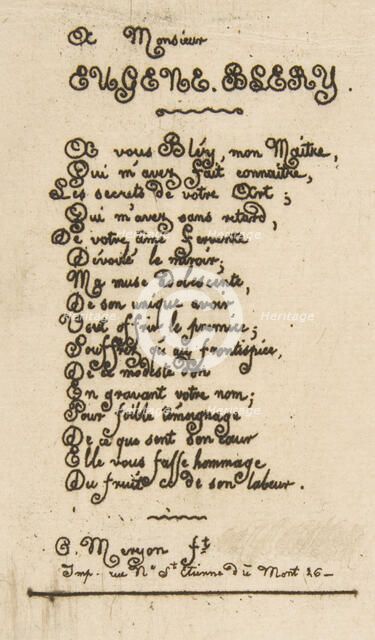 A Monsieur
EUGENE. BLERY.
A vous Bléry, mon Maître,
Qui m'avez fait connaitre,
Les secrets de votre Art;
Qui m'avez sans retard,
De votre âme fervente
Dévoilé le miroir;
Ma muse adolescente,
De son unique avoir
Veut offrir le premice;
Souffrez qu'au frontispice,
De ce modeste don
En gravant votre nom;
Pour foible témoignage
De ce que sent son cœur
Elle vous fasse hommage
Du fruit de son labeur.
C. Meryon ft
Imp. rue Ne St Etienne du Mont 26_
Heritage